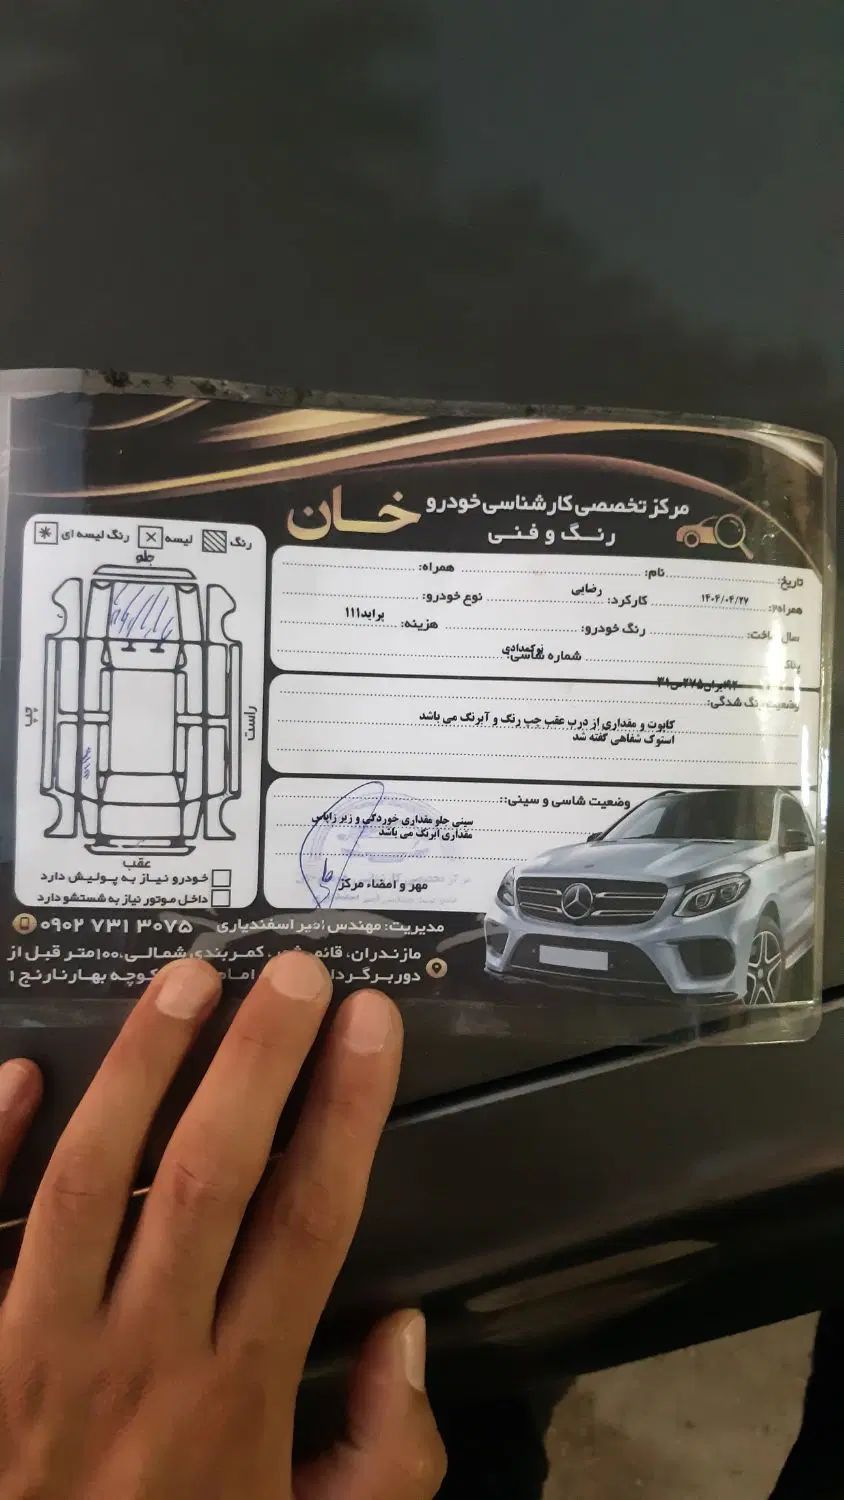 مرکز تخصصی کارشناسی خودرو خان
رنگ و فنی
رنگ
لیسه
رنگ لیسه ای
جلو
چپ
راست
عقب
خودرو نیاز به پولیش دارد
داخل موتور نیاز به شستشو دارد
تاریخ: نام: همراه:
۱۴۰۴/۰۴/۲۷ رضایی
همراه۲: کارکرد: نوع خودرو:
پراید۱۱۱
سال ساخت: رنگ خودرو: هزینه:
نوکمدادی
پلاک شماره شاسی:
وضعیت رنگ شدگی:
کاپوت و مقداری از درب عقب چپ رنگ و آبرنگ می باشد
استوک شفاهی گفته شد
وضعیت شاسی و سینی::
سینی جلو مقداری خوردگی و زیر زاپاس
مقداری آبرنگ می باشد
مهر و امضاء مرکز
مدیریت: مهندس امیر اسفندیاری ۰۹۰۲ ۷۳۱ ۳۰۷۵
مازندران، کمربندی شمالی،۱۰۰متر قبل از
کوچه بهارنارنج ۱